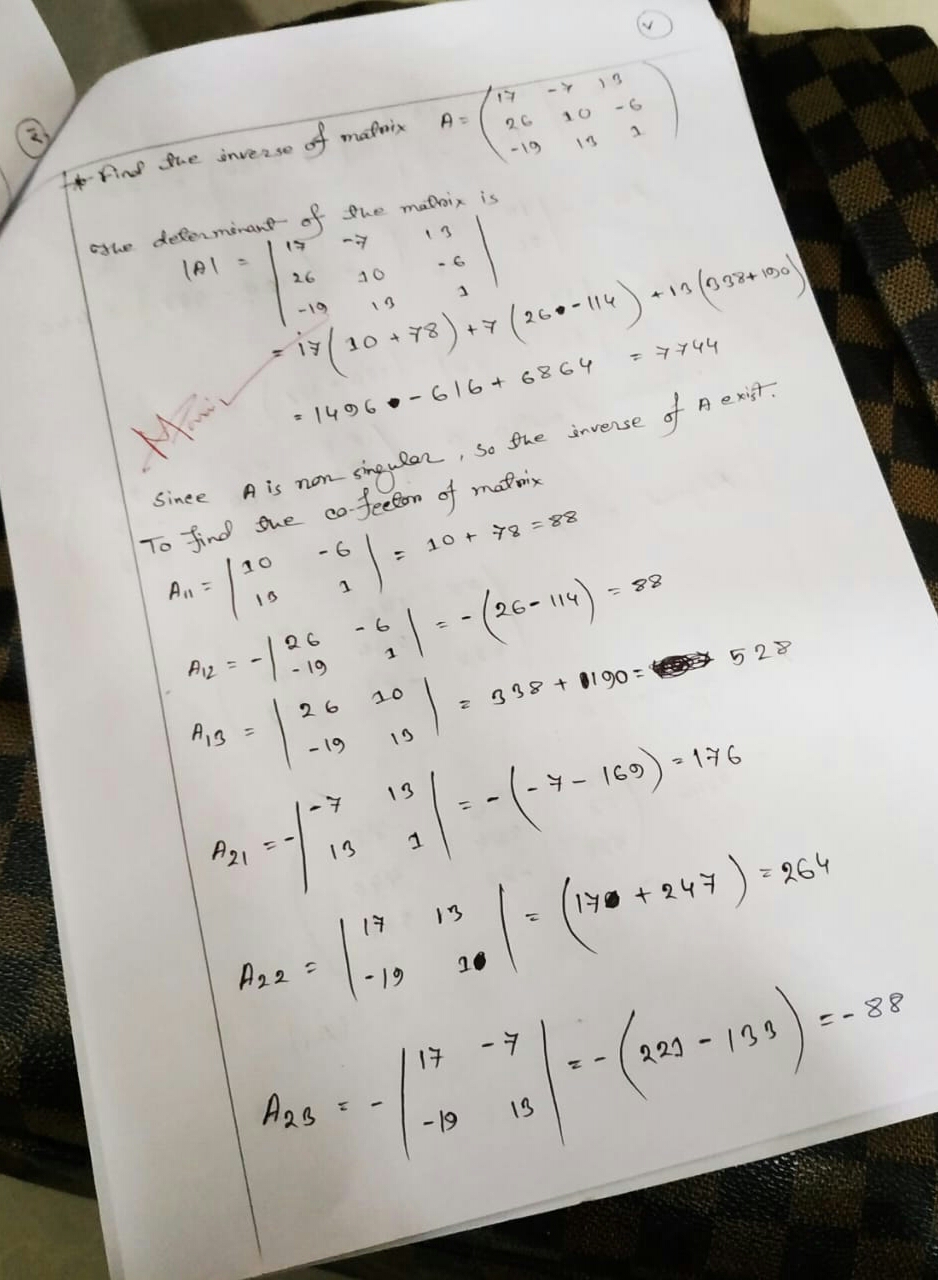 v
2
* Find the inverse of matrix A = ( 17 -7 13
26 10 -6
-19 13 1 )
The determinant of the matrix is
|A| = | 17 -7 13
26 10 -6
-19 13 1 |
= 17 ( 10 + 78 ) + 7 ( 26 - 114 ) + 13 ( 338 + 190 )
= 1496 - 616 + 6864 = 7744
Since A is non singular, so the inverse of A exist.
To find the co-fector of matrix
A11 = | 10 -6
13 1 | = 10 + 78 = 88
A12 = - | 26 -6
-19 1 | = - ( 26 - 114 ) = 88
A13 = | 26 10
-19 13 | = 338 + 190 = 528
A21 = - | -7 13
13 1 | = - ( -7 - 169 ) = 176
A22 = | 17 13
-19 1 | = ( 17 + 247 ) = 264
A23 = - | 17 -7
-19 13 | = - ( 221 - 133 ) = - 88